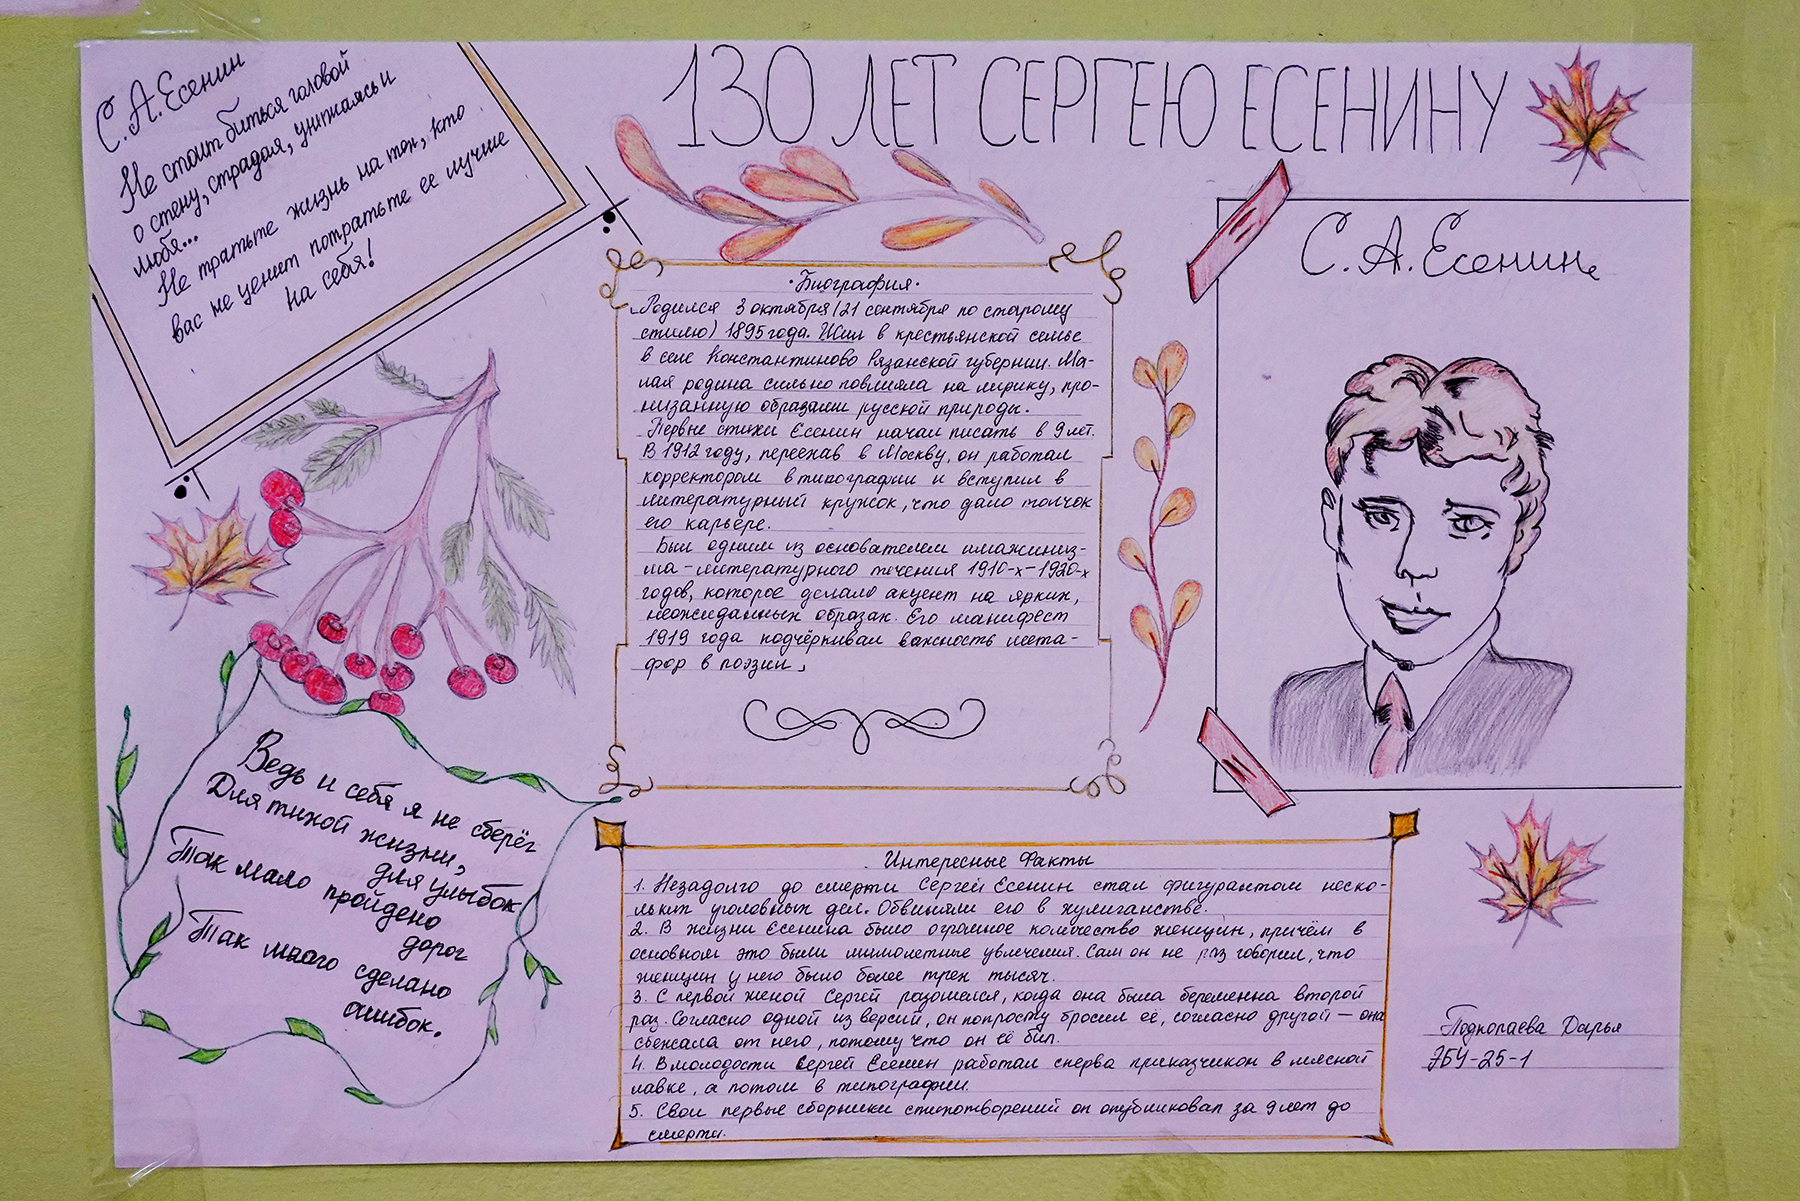 130 ЛЕТ СЕРГЕЮ ЕСЕНИНУ
С. А. Есенин
Не стоит биться головой
о стену, страдая, унижаясь и
любя...
Не тратьте жизнь на тех, кто
вас не ценит потратьте ее лучше
на себя!
·Биография·
Родился 3 октября (21 сентября по старому
стилю) 1895 года. Жил в крестьянской семье
в селе Константиново Рязанской губернии. Ма-
лая родина сильно повлияла на лирику, про-
низанную образами русской природы.
Первые стихи Есенин начал писать в 9 лет.
В 1912 году, переехав в Москву, он работал
корректором в типографии и вступил в
литературный кружок, что дало толчок
его карьере.
Был одним из основателем имажиниз-
ма - литературного течения 1910-х-1920-х
годов, которое делало акцент на ярких,
неожиданных образах. Его манифест
1919 года подчёркивал важность мета-
фор в поэзии.
С. А. Есенин
Ведь и себя я не сберёг
Для тихой жизни,
для улыбок
Так мало пройдено
дорог
Так много сделано
ошибок.
Интересные Факты
1. Незадолго до смерти Сергей Есенин стал фигурантом неско-
льких уголовных дел. Обвиняли его в хулиганстве.
2. В жизни Есенина было огромное количество женщин, причём в
основном это были мимолетные увлечения. Сам он не раз говорил, что
женщин у него было более трех тысяч.
3. С первой женой Сергей разошелся, когда она была беременна второй
раз. Согласно одной из версий, он попросту бросил её, согласно другой — она
сбежала от него, потому что он её бил.
4. В молодости Сергей Есенин работал сперва приказчиком в мясной
лавке, а потом в типографии.
5. Свои первые сборники стихотворений он опубликовал за 9 лет до
смерти.
Подколаева Дарья
7БУ-25-1